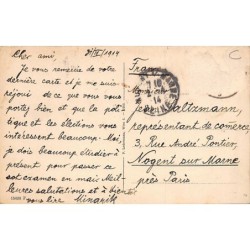 Cher ami, 2/III 1914
Je vous remercie de votre
dernière carte et je me suis
rejoui de ce que vous vous
portez bien et que la poli
tique et les élections vous
intéressent beaucoup. Moi,
je dois beaucoup étudier à
présent pour passer ce
sot examen en mai. Meil-
leures salutations et à bientôt
vous lire
France
Monsieur
Jean Saltzmann
représentant de commerce
3, Rue André Pontier,
Nogent sur Marne
près Paris